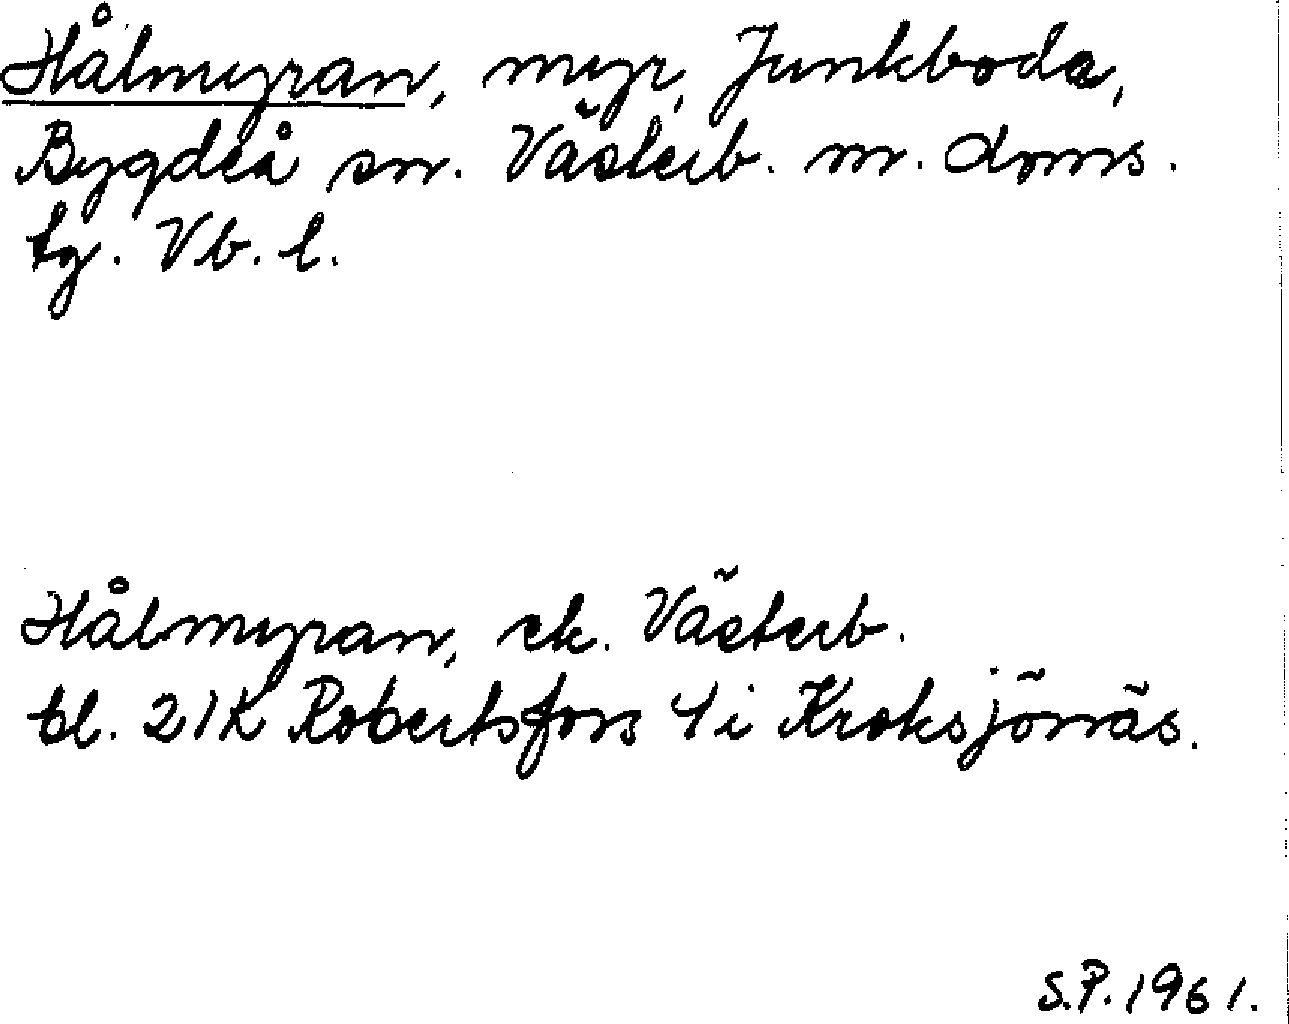 Hålmyran, myr, Junkboda,
Bygdeå sn. Västerb. m. doms.
tg. Vb. l.
Hålmyran, ek. Västerb.
bl. 21K Robertsfors 4i Kroksjönäs.
S.P. 1961.